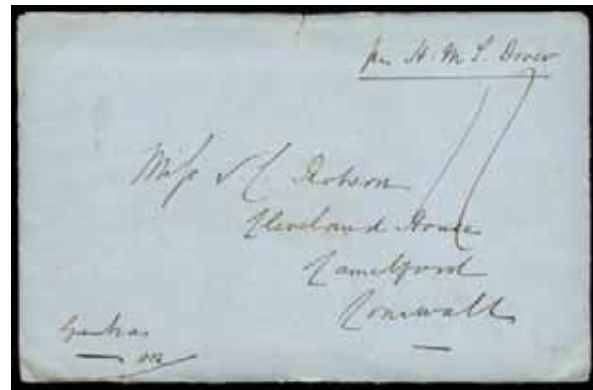 per H.M.S. Dover
Miss Robson
Cleveland House
Camelford
Cornwall
Gambia